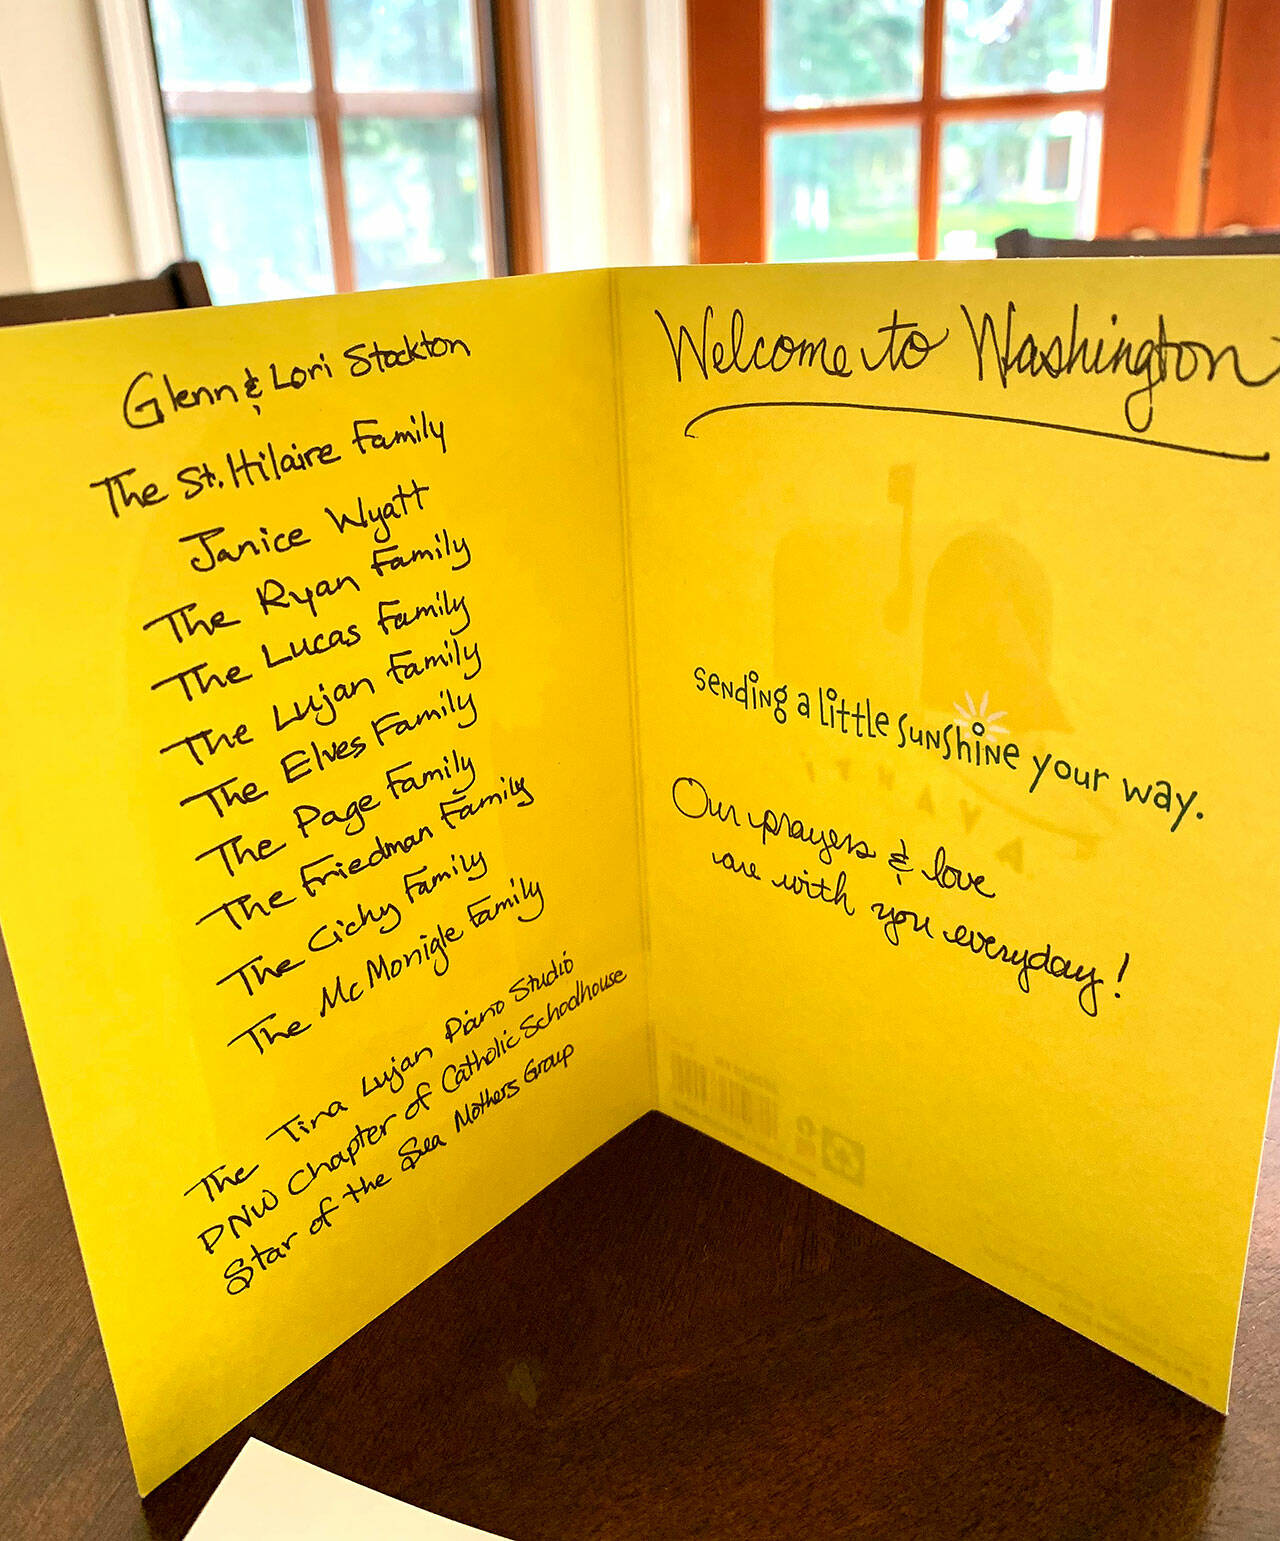 Glenn & Lori Stockton
The St. Hilaire Family
Janice Wyatt
The Ryan Family
The Lucas Family
The Lujan Family
The Elves Family
The Page Family
The Friedman Family
The Cichy Family
The McMonigle Family
The Tina Lujan Piano Studio
PNW Chapter of Catholic Schoolhouse
Star of the Sea Mothers Group
Welcome to Washington
sending a little sunshine your way.
Our prayers & love
are with you everyday!